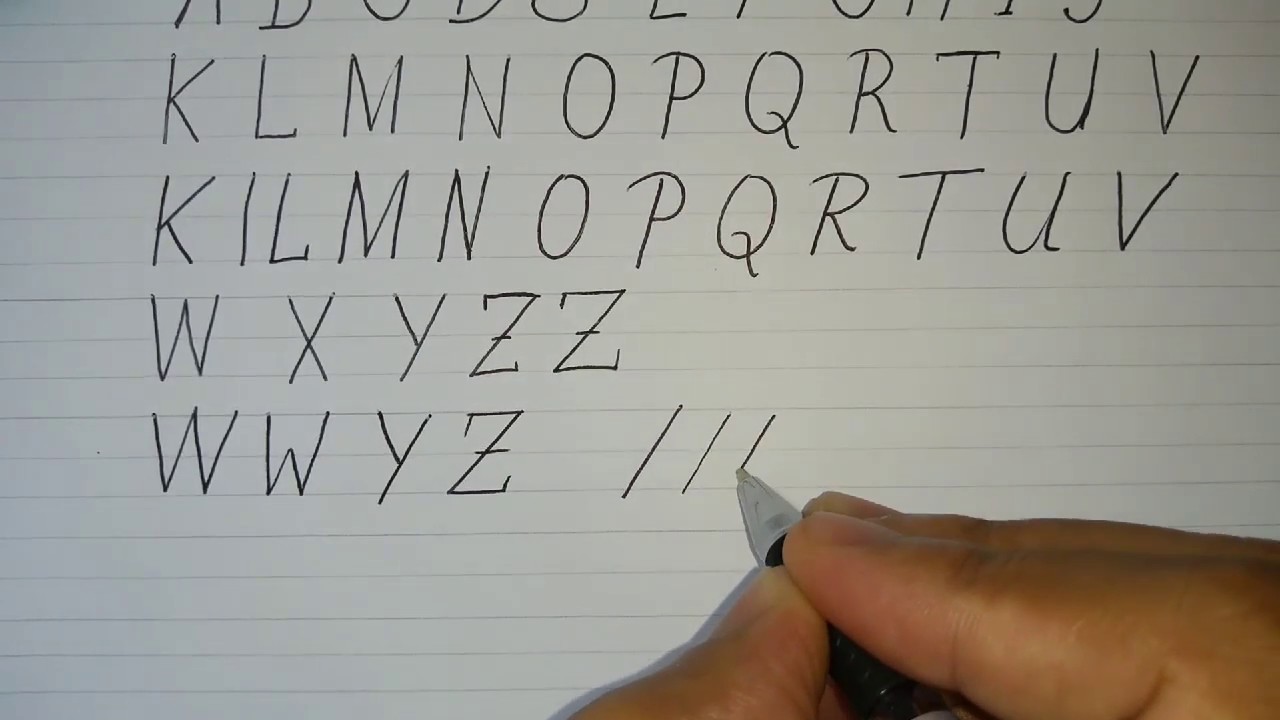 K L M N O P Q R T U V
K I L M N O P Q R T U V
W X Y Z Z
W W Y Z / / /